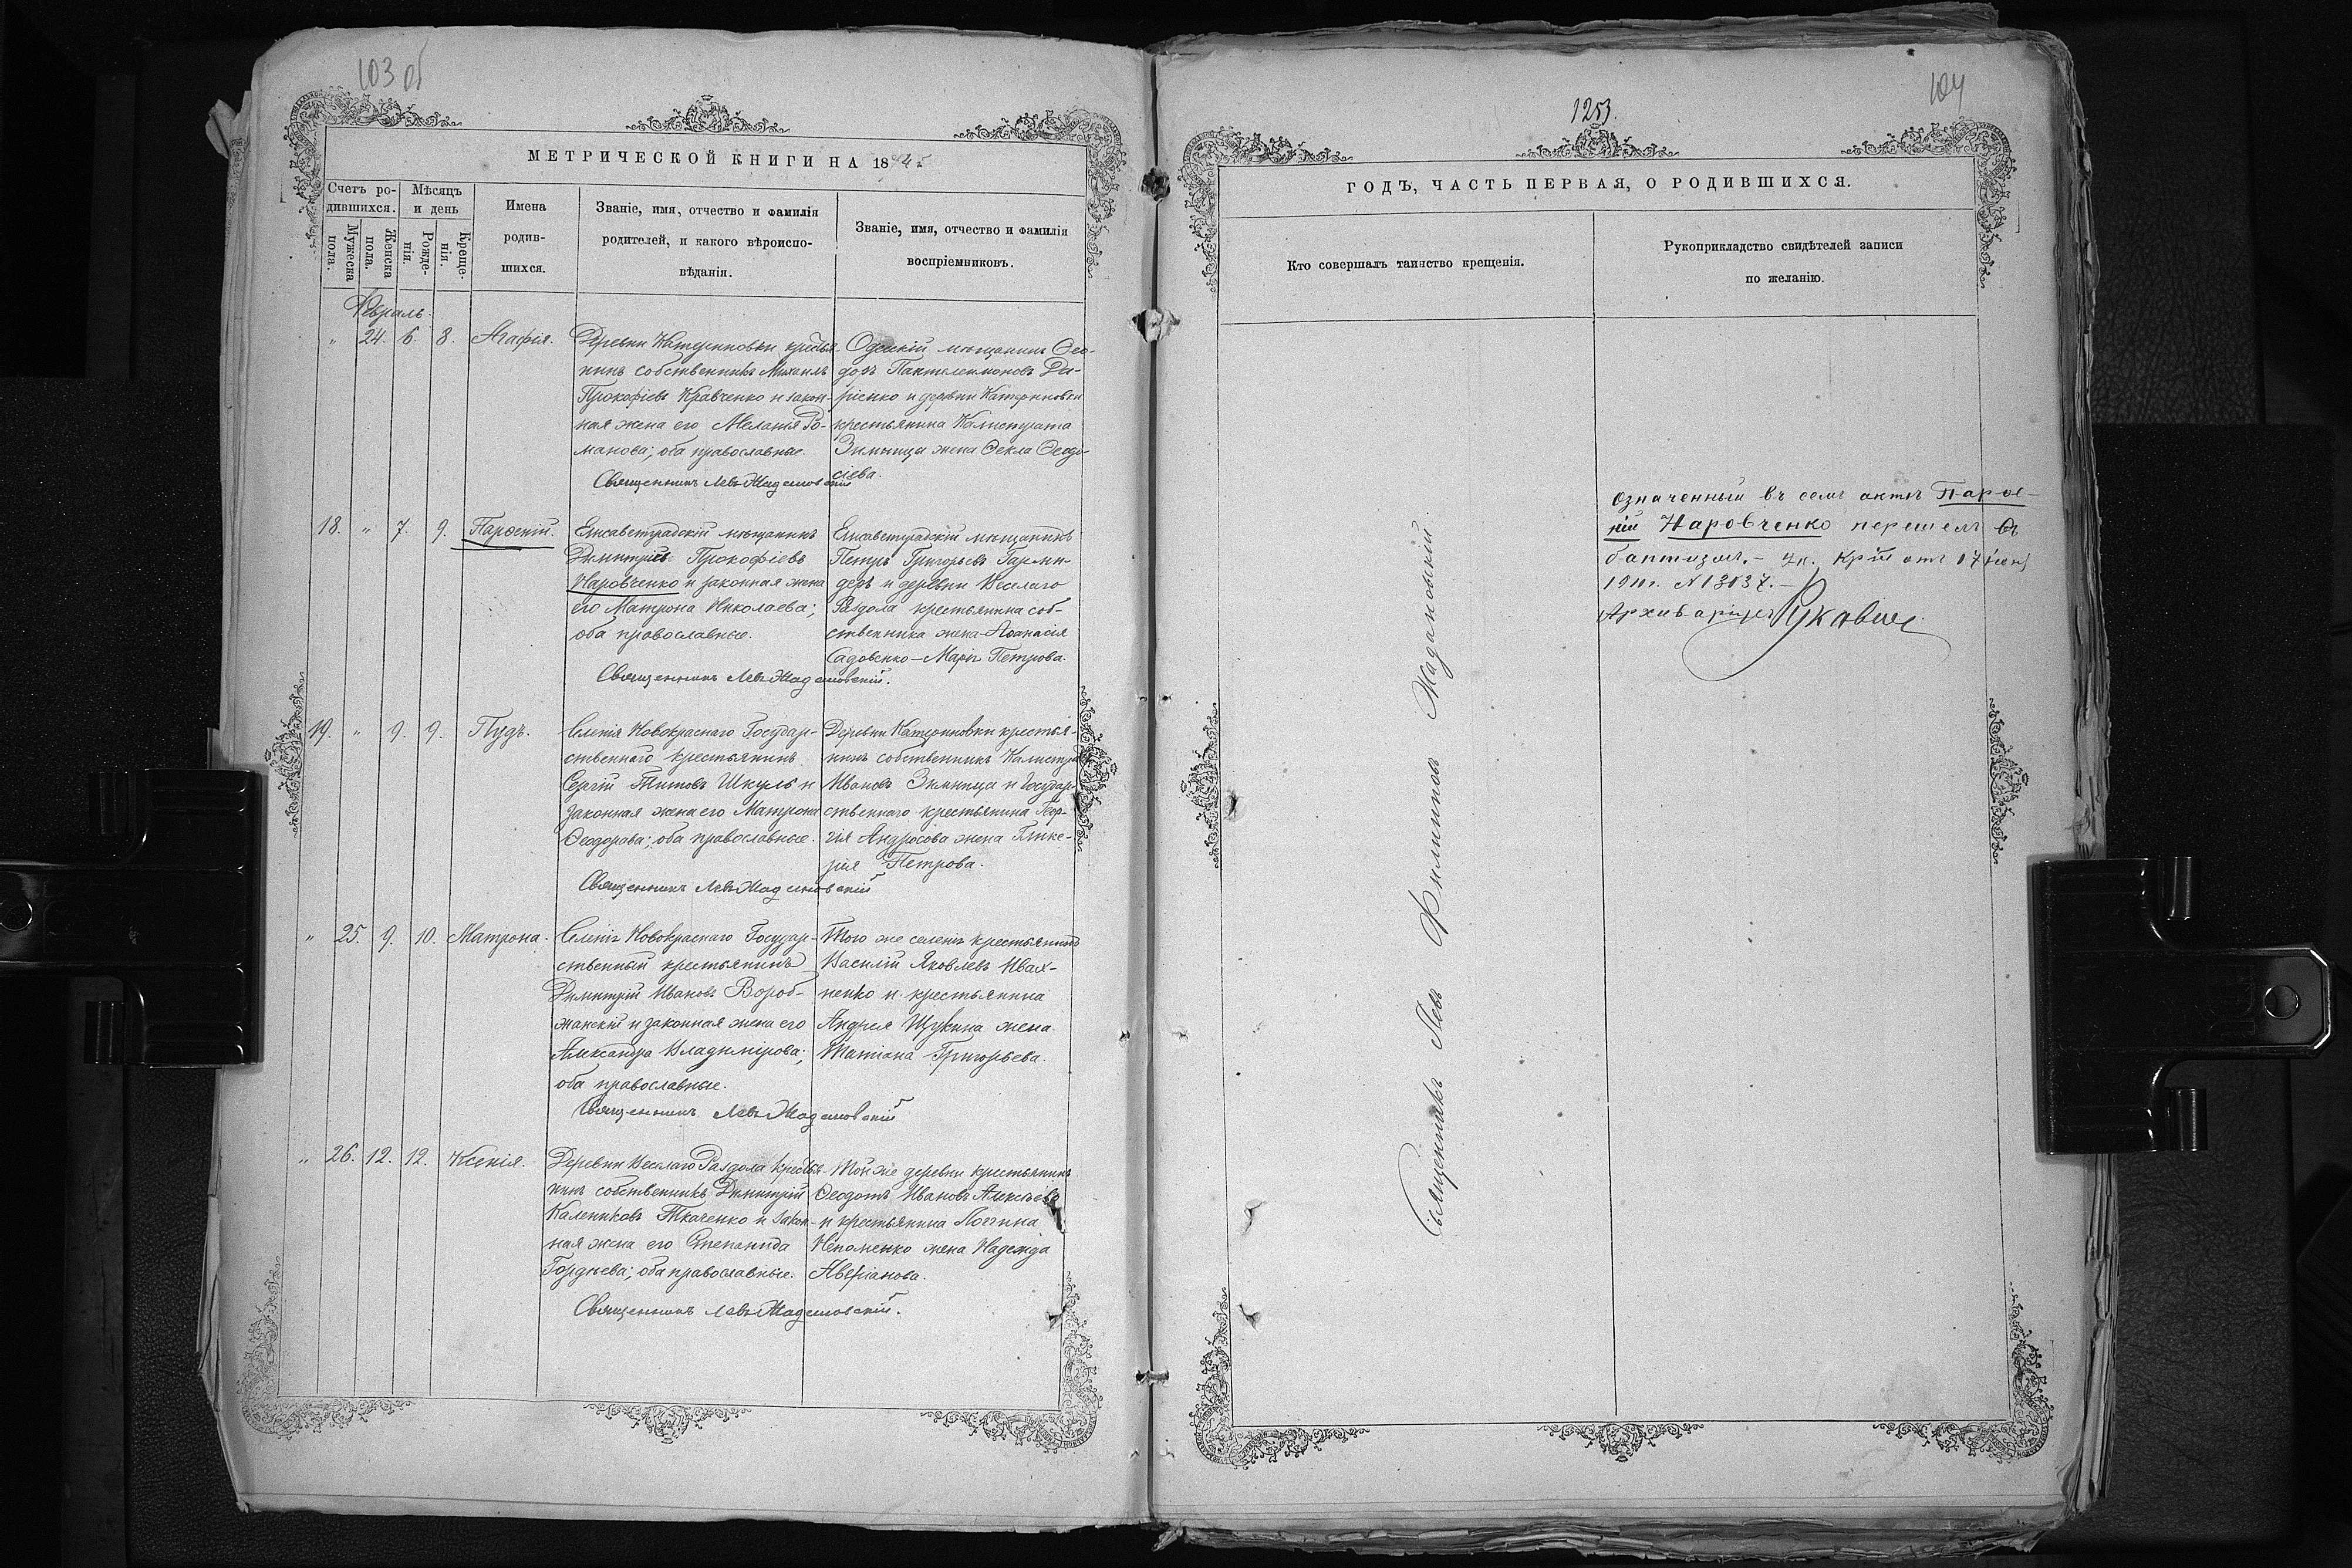 103 об
МЕТРИЧЕСКОЙ КНИГИ НА 18
Счетъ ро-
дившихся.
Мужеска пола.
Женска пола.
Мѣсяцъ
и день
Рожде-
нія
Креще-
нія.
Имена
родив-
шихся.
Званіе, имя, отчество и фамилія
родителей, и какого вѣроиспо-
вѣданія.
Званіе, имя, отчество и фамилія
воспріемниковъ.
Февраль.
" 24. 6. 8. Агафія.
Деревни Катериновки крестья-
нинъ собственникъ Михаилъ
Прокофіевъ Кравченко и закон-
ная жена его Меланія Ро-
манова; оба православные.
Одесскій мѣщанинъ Ѳео-
доръ Пантелеимоновъ Да-
ріенко и деревни Катериновки
крестьянина Калистрата
Зимница жена Ѳекла Ѳеодо-
сіева.
Священникъ Левъ Жадановскій
18. " 7. 9. Парѳеній.
Елисаветградскій мѣщанинъ
Димитрій Прокофіевъ
Наровченко и законная жена
его Матрона Николаева;
оба православные.
Елисаветградскій мѣщанинъ
Петръ Григорьевъ Гарми-
деръ и деревни Веселаго
Раздола крестьянина соб-
ственника жена Аѳанасія
Садовенко – Марія Петрова.
Священникъ Левъ Жадановскій.
19. " 9. 9. Пудъ.
Селенія Новокраснаго Государ-
ственнаго крестьянинъ
Сергій Титовъ Шкуль и
законная жена его Матрона
Ѳеодорова; оба православные.
Деревни Катериновки крестья-
нинъ собственникъ Калистратъ
Ивановъ Зимница и Государ-
ственнаго крестьянина Геор-
гія Андросова жена Глике-
рія Петрова.
Священникъ Левъ Жадановскій
" 25. 9. 10. Матрона.
Селенія Новокраснаго Государ-
ственный крестьянинъ
Димитрій Ивановъ Вороб-
жанскій и законная жена его
Александра Владимірова;
оба православные.
Того же селенія крестьянинъ
Василій Яковлевъ Ивах-
ненко и крестьянина
Андрея Щукина жена
Татіана Григорьева.
Священникъ Левъ Жадановскій
" 26. 12. 12. Ксенія.
Деревни Веселаго Раздола крестья-
нинъ собственникъ Димитрій
Калениковъ Ткаченко и закон-
ная жена его Степанида
Гордѣева; оба православные.
Той же деревни крестьянинъ
Ѳеодотъ Ивановъ Алексѣевъ
и крестьянина Логгина
жена Надежда
Аверіанова.
Священникъ Левъ Жадановскій.
104
1253.
ГОДЪ, ЧАСТЬ ПЕРВАЯ, О РОДИВШИХСЯ.
Кто совершалъ таинство крещенія.
Рукоприкладство свидѣтелей записи
по желанію.
Священникъ Левъ Филиповъ Жадановскій.
Означенный въ семъ актѣ Парѳе-
ній Наровченко перешелъ въ
баптизмъ. –
1910 г. № 13137. –
Архиваріусъ